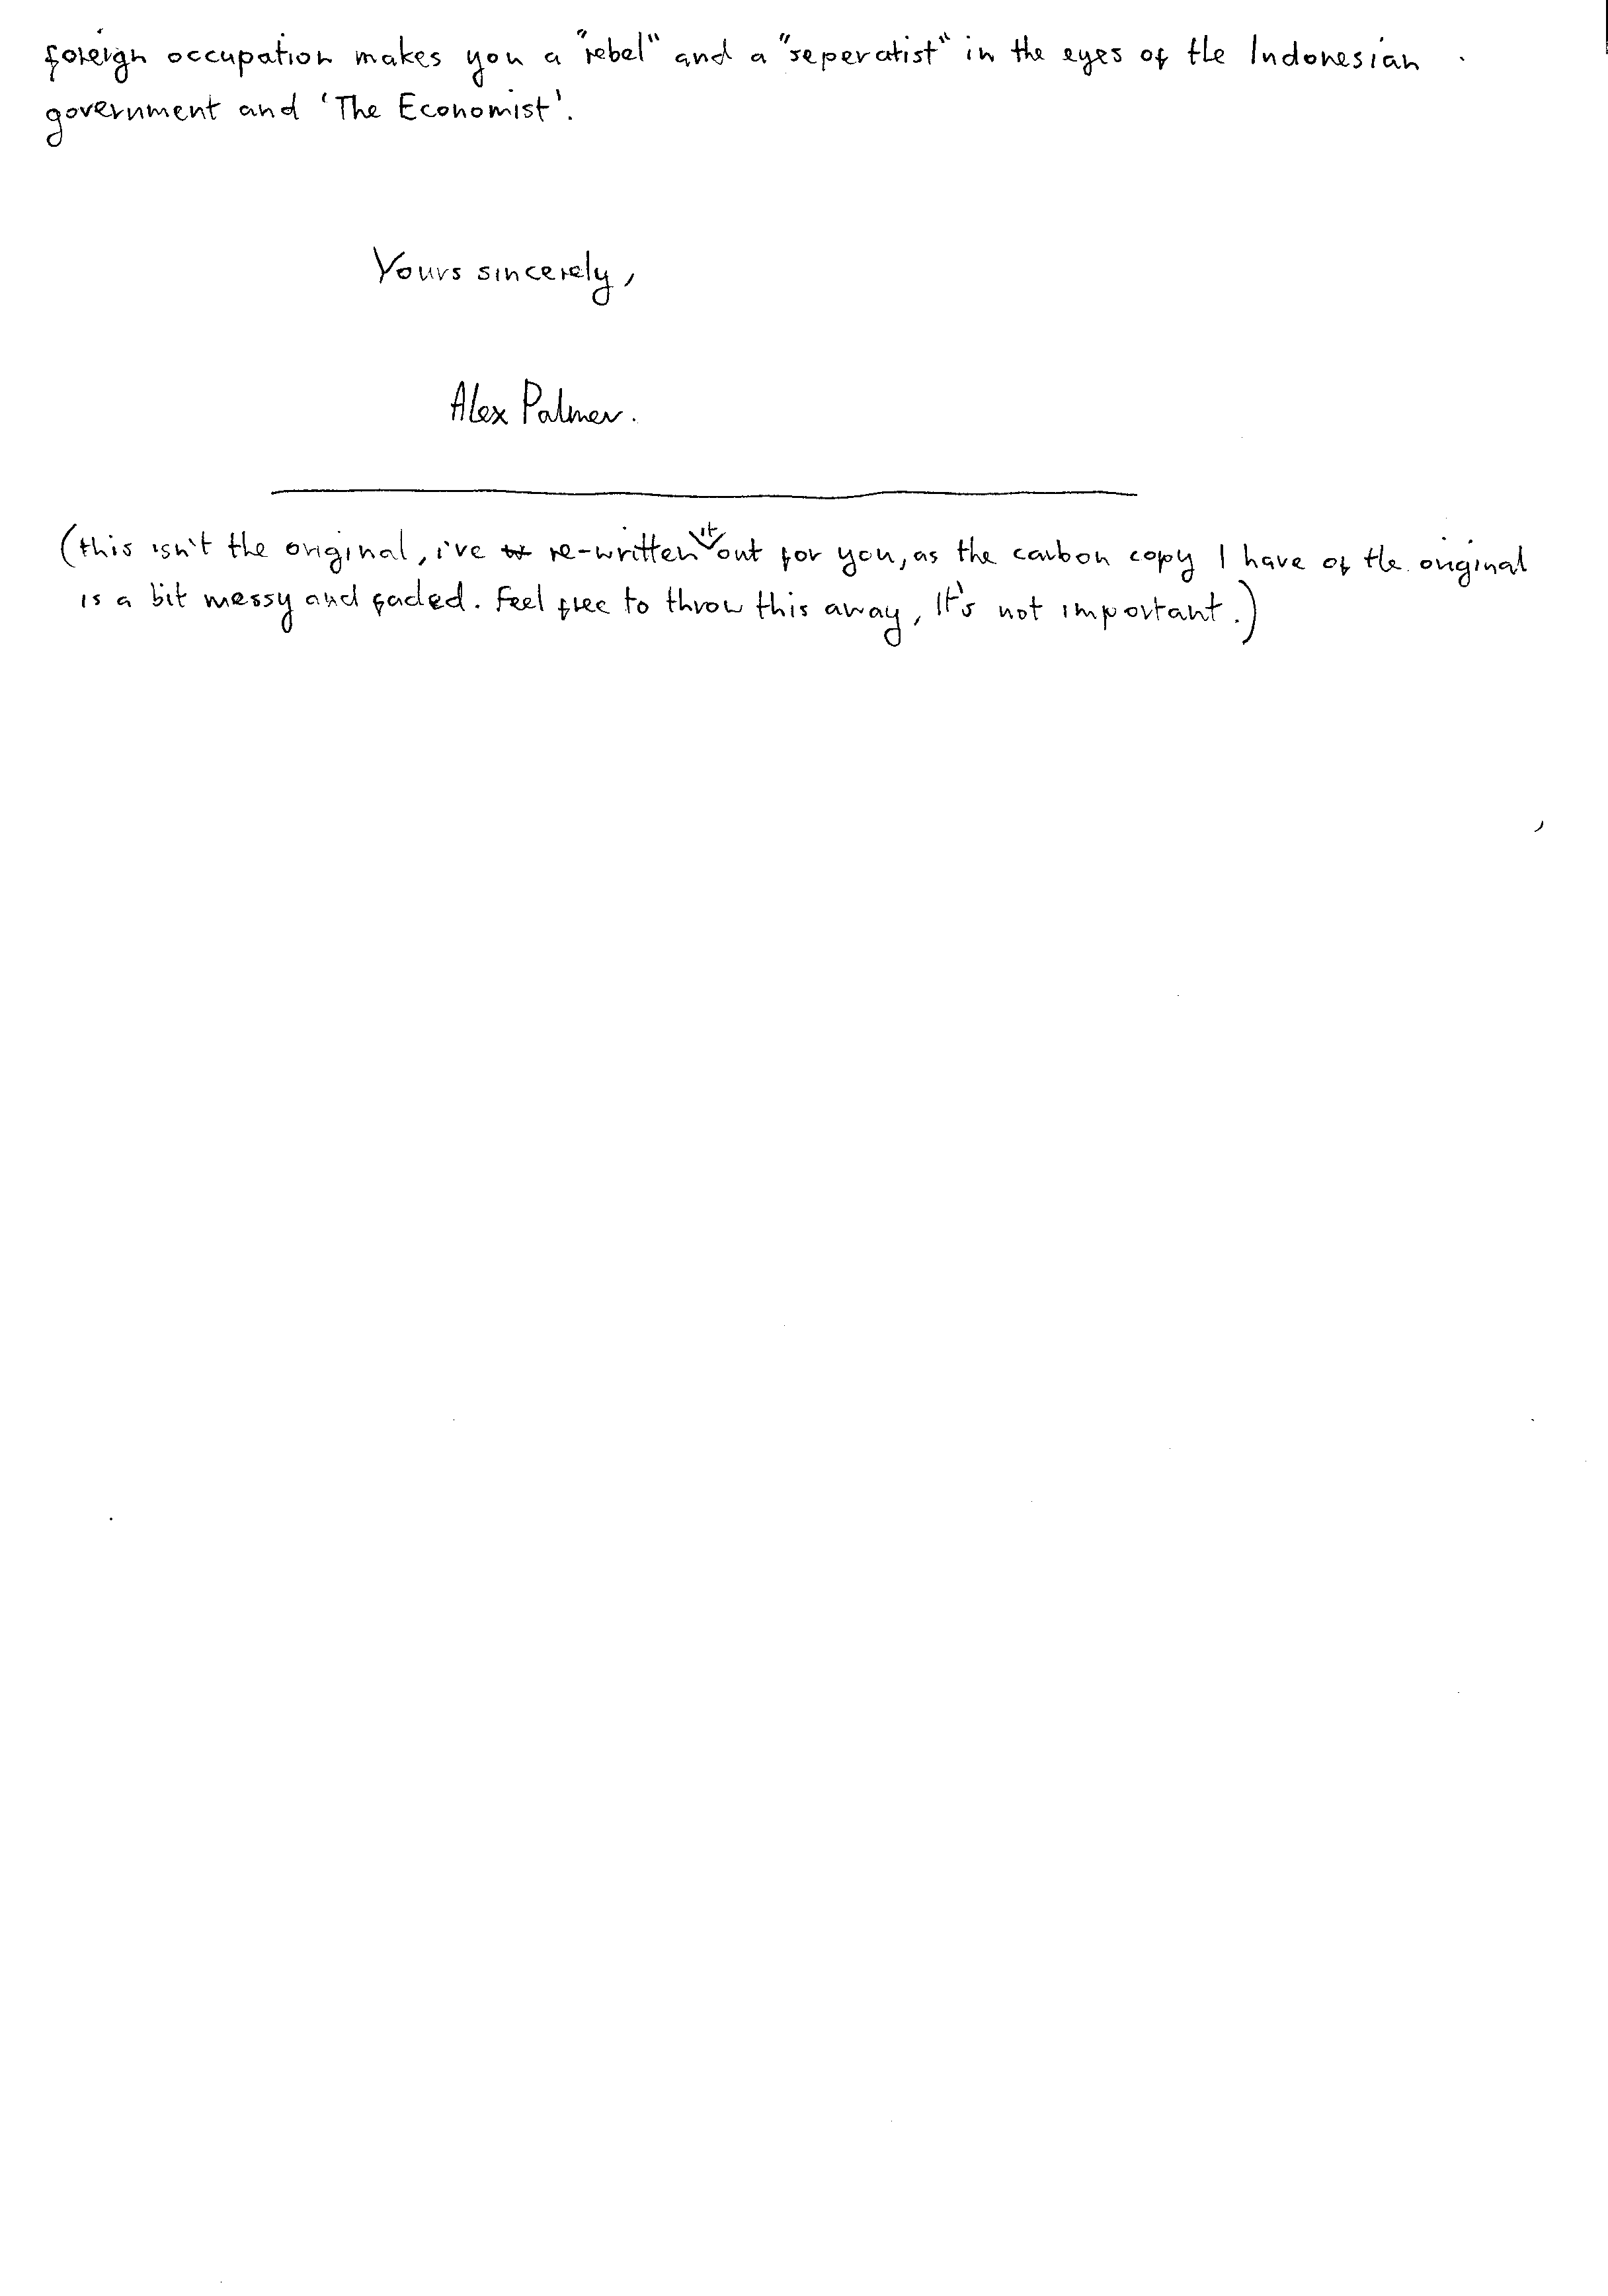 foreign occupation makes you a "rebel" and a "seperatist" in the eyes of the Indonesian
government and 'The Economist'.
Yours sincerely,
Alex Palmer.
(this isn't the original, i've re-written it out for you, as the carbon copy I have of the original
is a bit messy and faded. Feel free to throw this away, It's not important.)